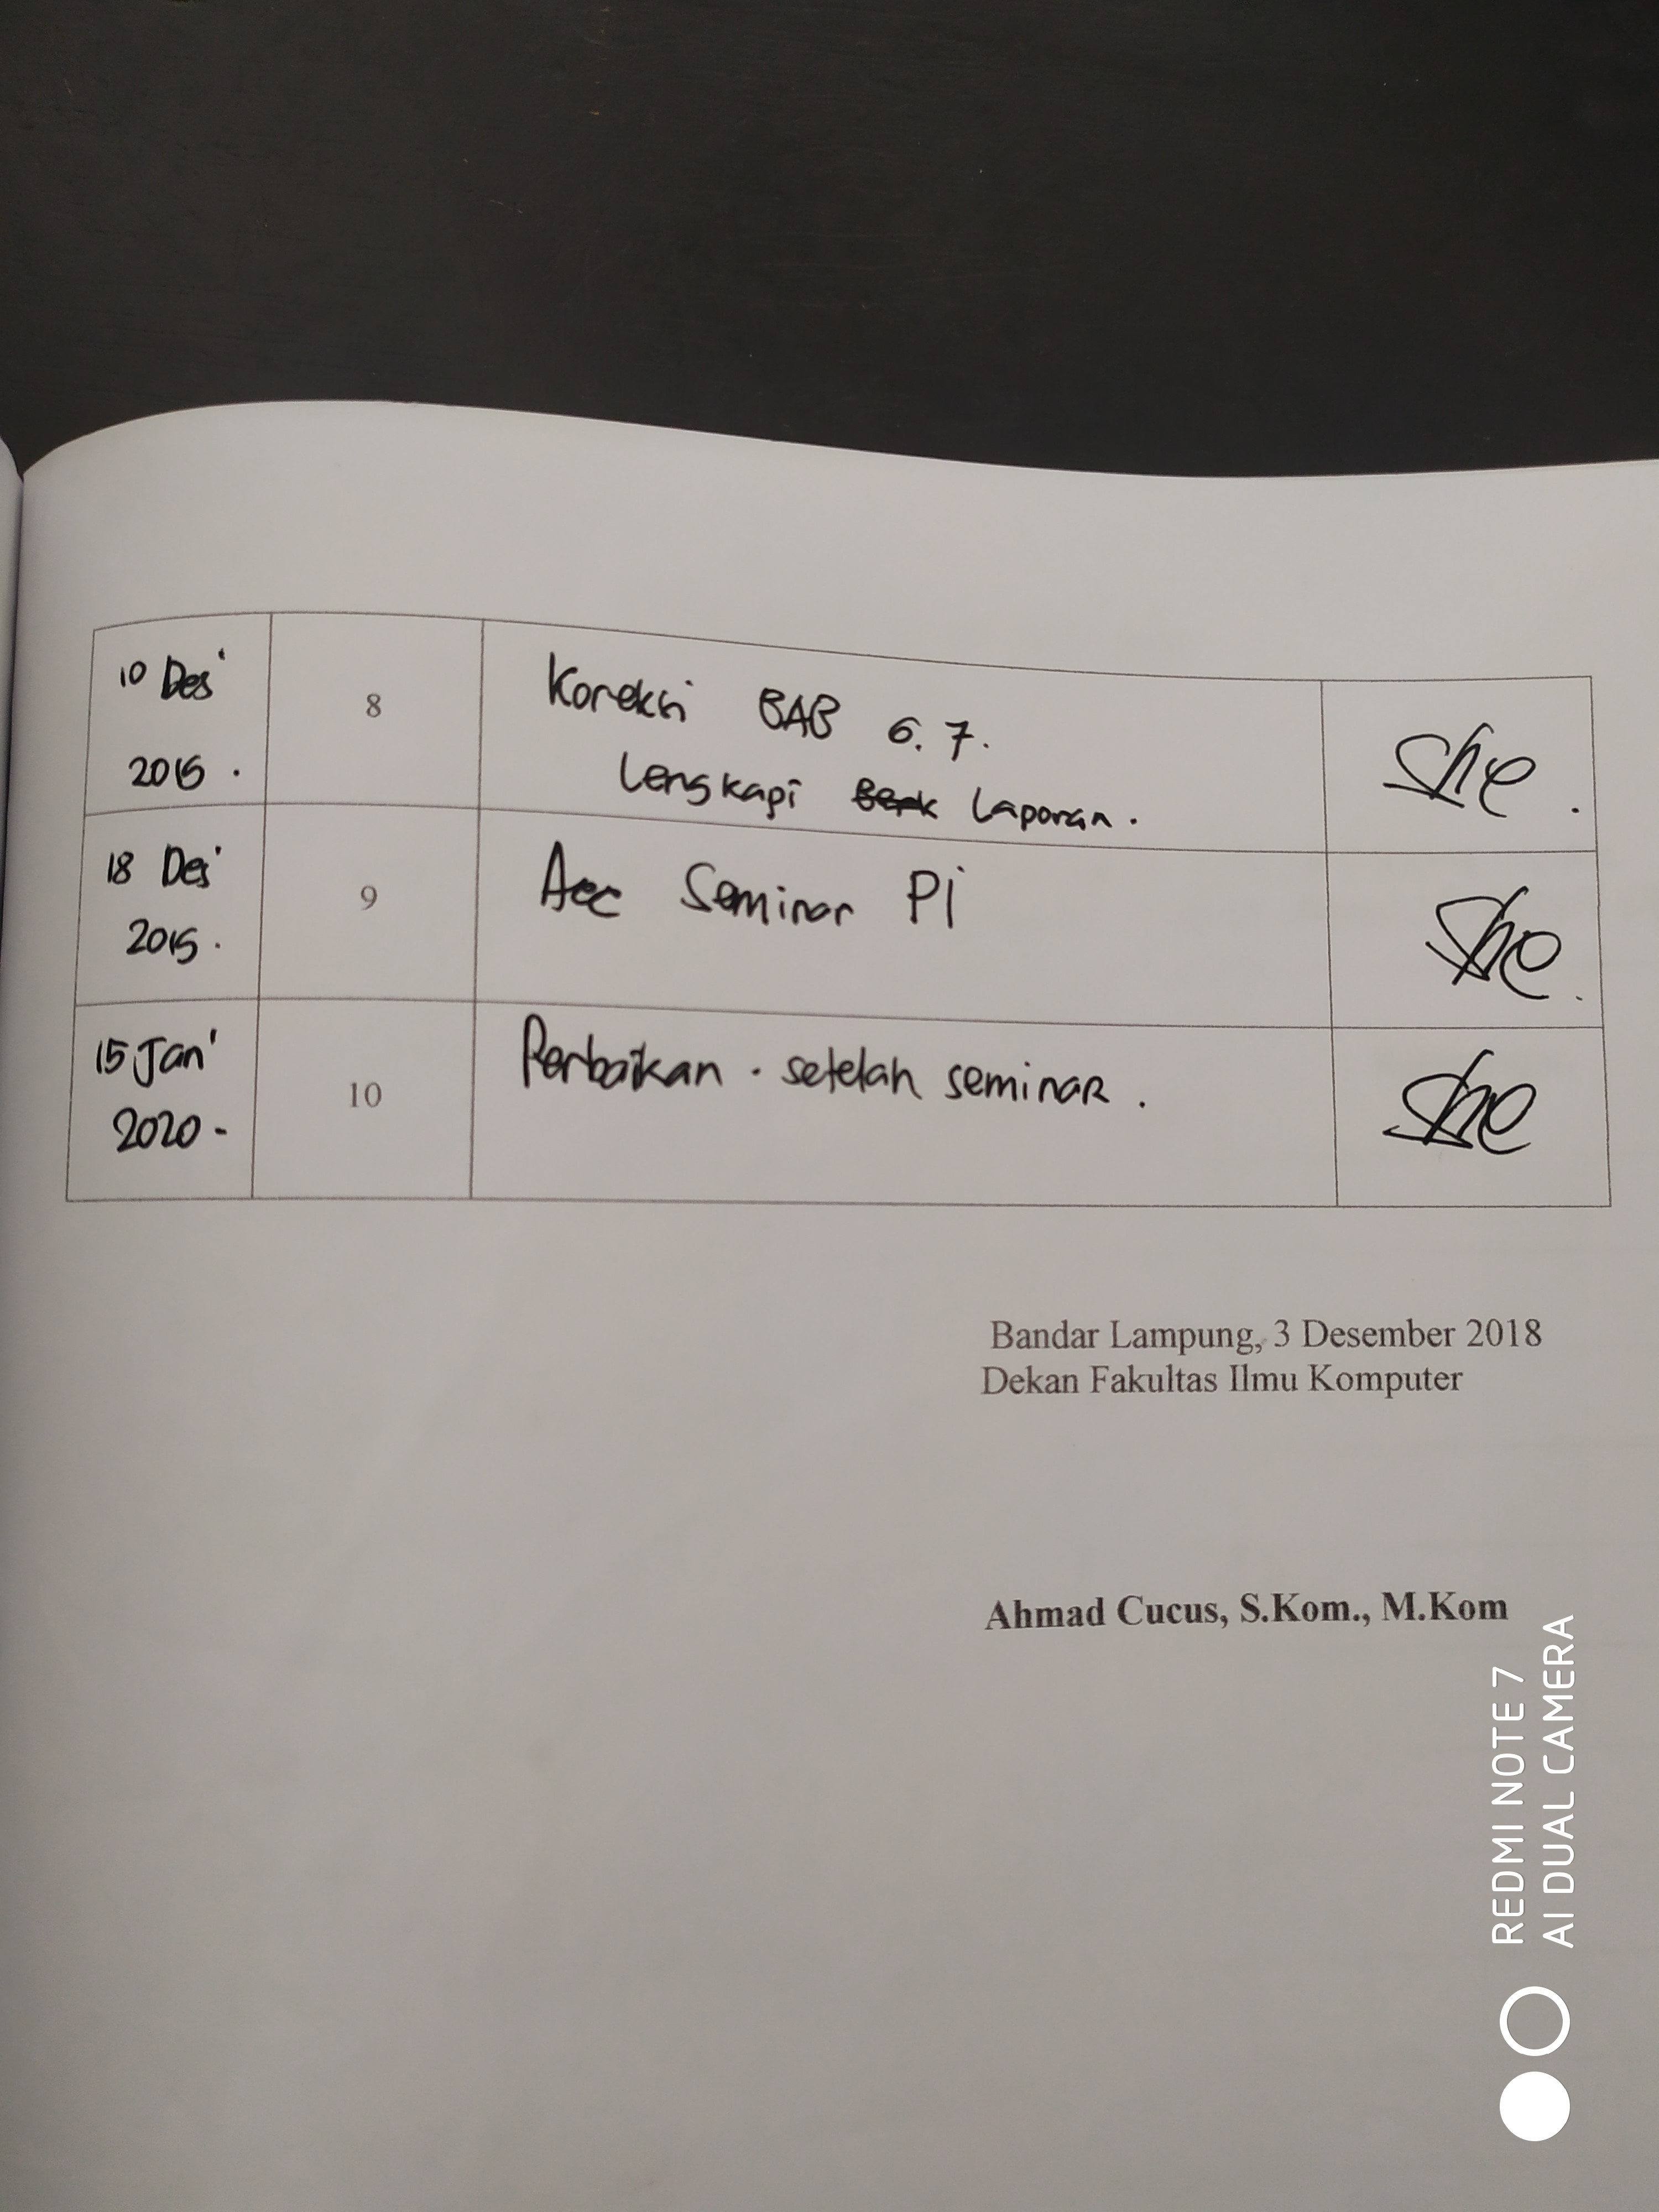 10 Des'
2015.
8
Koreksi BAB 6.7.
Lengkapi Laporan.
18 Des'
2015.
9
Acc Seminar PI
15 Jan'
2020-
10
Perbaikan . setelah seminar.
Bandar Lampung, 3 Desember 2018
Dekan Fakultas Ilmu Komputer
Ahmad Cucus, S.Kom., M.Kom
REDMI NOTE 7
AI DUAL CAMERA